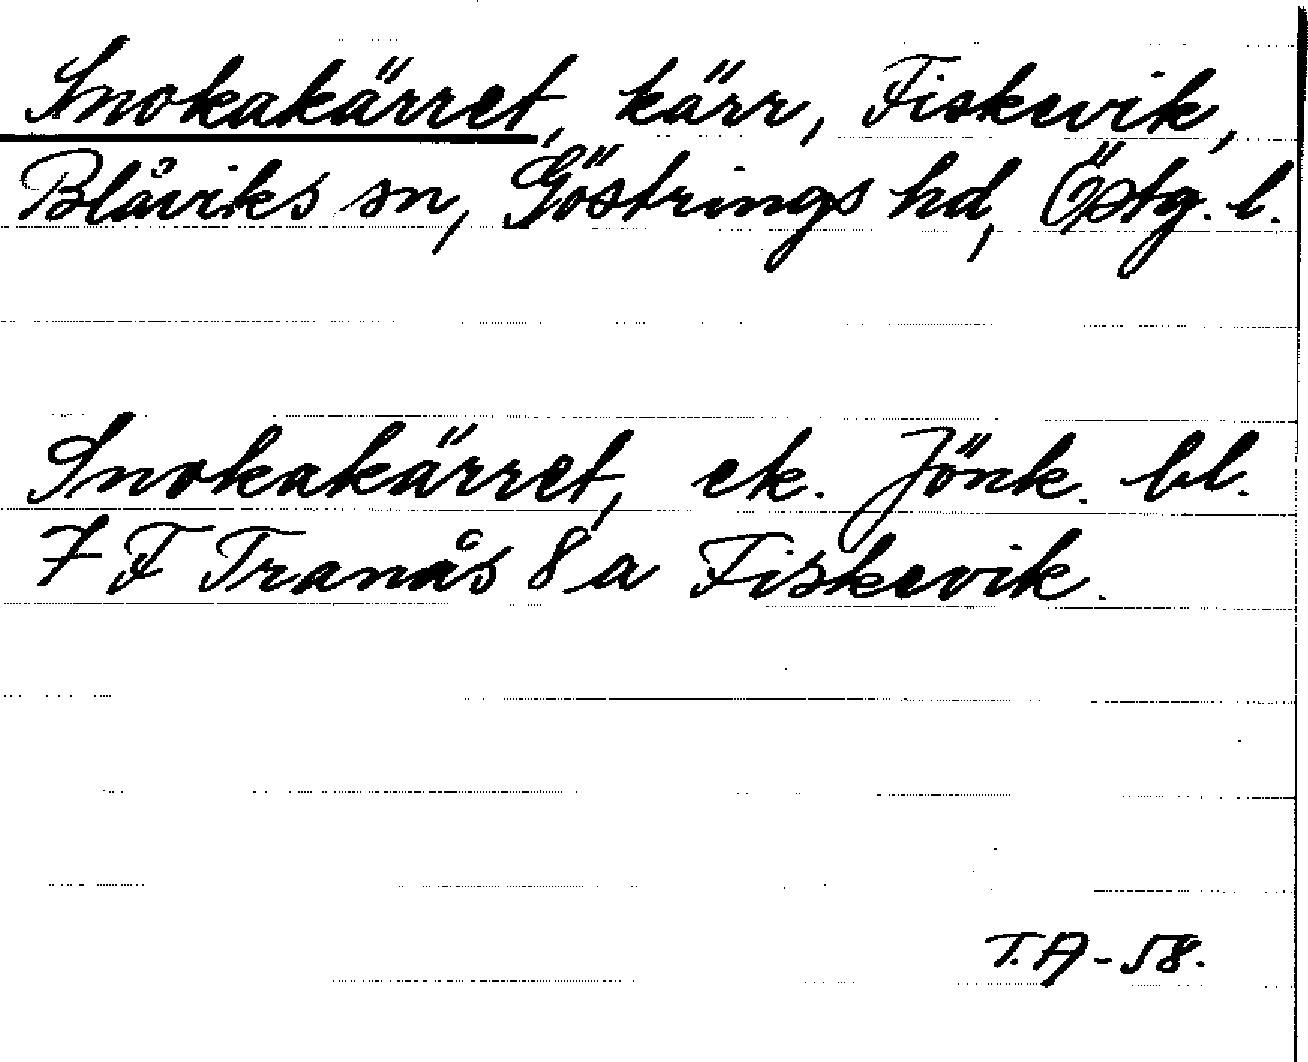 Snokakärret, kärr, Fiskevik,
Blåviks sn, Göstrings hd, Östg. l.
Snokakärret, ek. Jönk. bl.
7 F Tranås 8 a Fiskevik.
T.A-58.